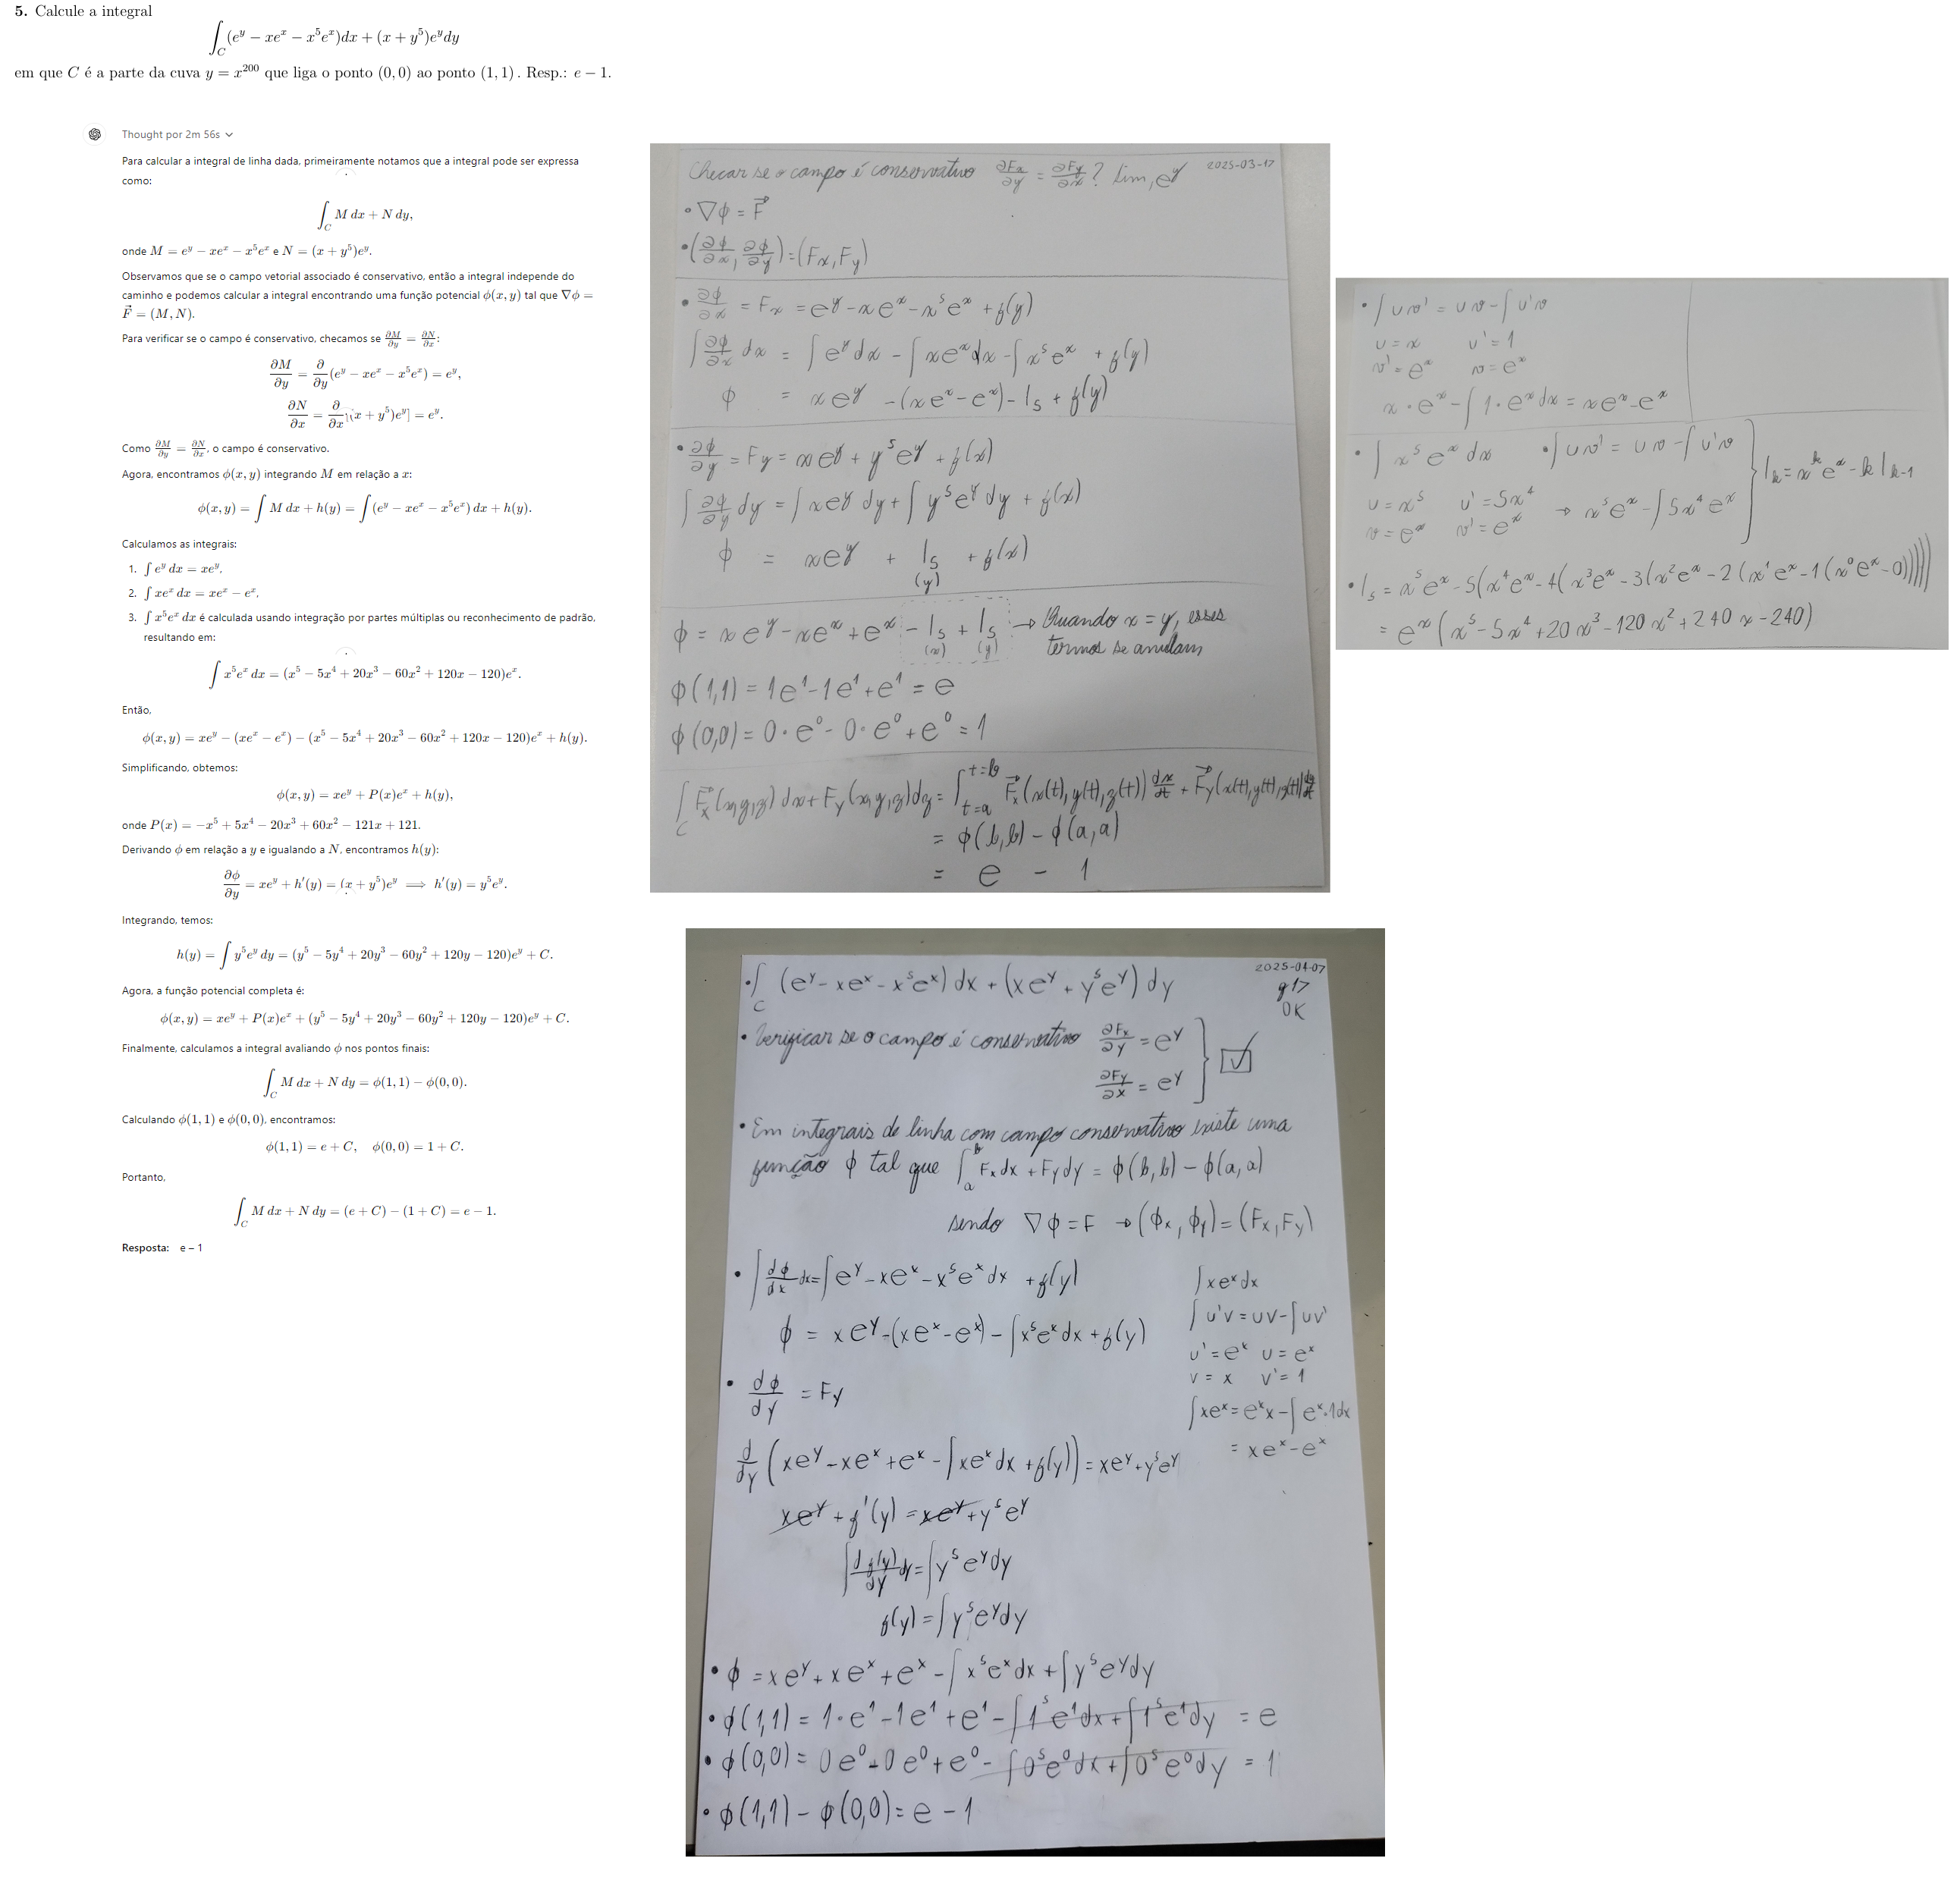 5. Calcule a integral
∫_C (e^y − xe^x − x^5e^x)dx + (x + y^5)e^y dy
em que C é a parte da cuva y = x^200 que liga o ponto (0, 0) ao ponto (1, 1) . Resp.: e − 1.
Thought por 2m 56s
Para calcular a integral de linha dada, primeiramente notamos que a integral pode ser expressa
como:
∫_C M dx + N dy,
onde M = e^y − xe^x − x^5e^x e N = (x + y^5)e^y.
Observamos que se o campo vetorial associado é conservativo, então a integral independe do
caminho e podemos calcular a integral encontrando uma função potencial ϕ(x, y) tal que ∇ϕ =
F⃗ = (M, N).
Para verificar se o campo é conservativo, checamos se ∂M/∂y = ∂N/∂x:
∂M/∂y = ∂/∂y (e^y − xe^x − x^5e^x) = e^y,
∂N/∂x = ∂/∂x [(x + y^5)e^y] = e^y.
Como ∂M/∂y = ∂N/∂x, o campo é conservativo.
Agora, encontramos ϕ(x, y) integrando M em relação a x:
ϕ(x, y) = ∫ M dx + h(y) = ∫ (e^y − xe^x − x^5e^x) dx + h(y).
Calculamos as integrais:
1. ∫ e^y dx = xe^y,
2. ∫ xe^x dx = xe^x − e^x,
3. ∫ x^5e^x dx é calculada usando integração por partes múltiplas ou reconhecimento de padrão,
resultando em:
∫ x^5e^x dx = (x^5 − 5x^4 + 20x^3 − 60x^2 + 120x − 120)e^x.
Então,
ϕ(x, y) = xe^y − (xe^x − e^x) − (x^5 − 5x^4 + 20x^3 − 60x^2 + 120x − 120)e^x + h(y).
Simplificando, obtemos:
ϕ(x, y) = xe^y + P(x)e^x + h(y),
onde P(x) = −x^5 + 5x^4 − 20x^3 + 60x^2 − 121x + 121.
Derivando ϕ em relação a y e igualando a N, encontramos h(y):
∂ϕ/∂y = xe^y + h′(y) = (x + y^5)e^y ⟹ h′(y) = y^5e^y.
Integrando, temos:
h(y) = ∫ y^5e^y dy = (y^5 − 5y^4 + 20y^3 − 60y^2 + 120y − 120)e^y + C.
Agora, a função potencial completa é:
ϕ(x, y) = xe^y + P(x)e^x + (y^5 − 5y^4 + 20y^3 − 60y^2 + 120y − 120)e^y + C.
Finalmente, calculamos a integral avaliando ϕ nos pontos finais:
∫_C M dx + N dy = ϕ(1, 1) − ϕ(0, 0).
Calculando ϕ(1, 1) e ϕ(0, 0), encontramos:
ϕ(1, 1) = e + C, ϕ(0, 0) = 1 + C.
Portanto,
∫_C M dx + N dy = (e + C) − (1 + C) = e − 1.
Resposta: e – 1
Checar se o campo é conservativo ∂Fx/∂y = ∂Fy/∂x ? Sim, e^y 2025-03-17
• ∇ϕ = F⃗
• (∂ϕ/∂x, ∂ϕ/∂y) = (Fx, Fy)
• ∂ϕ/∂x = Fx = e^y − xe^x − x^5e^x + g(y)
∫ ∂ϕ/∂x dx = ∫ e^y dx − ∫ xe^x dx − ∫ x^5e^x + g(y)
ϕ = xe^y − (xe^x − e^x) − I5 + g(y)
• ∂ϕ/∂y = Fy = xe^y + y^5e^y + g(x)
∫ ∂ϕ/∂y dy = ∫ xe^y dy + ∫ y^5e^y dy + g(x)
ϕ = xe^y + I5 (y) + g(x)
ϕ = xe^y − xe^x + e^x − I5 (x) + I5 (y) → Quando x = y, esses
termos se anulam
ϕ(1,1) = 1e^1 − 1e^1 + e^1 = e
ϕ(0,0) = 0·e^0 − 0·e^0 + e^0 = 1
∫_C F⃗x(x,y,z) dx + Fy(x,y,z)dy = ∫_{t=a}^{t=b} F⃗x(x(t),y(t),z(t)) dx/dt + F⃗y(x(t),y(t),z(t)) dy/dt
= ϕ(b,b) − ϕ(a,a)
= e − 1
• ∫ uv' = uv − ∫ u'v
u = x u' = 1
v' = e^x v = e^x
x·e^x − ∫ 1·e^x dx = xe^x − e^x
• ∫ x^5e^x dx • ∫ uv' = uv − ∫ u'v
u = x^5 u' = 5x^4 → x^5e^x − ∫ 5x^4e^x } Ik = x^k e^x − k Ik-1
v = e^x v' = e^x
• I5 = x^5e^x − 5(x^4e^x − 4(x^3e^x − 3(x^2e^x − 2(x^1e^x − 1(x^0e^x − 0)))))
= e^x (x^5 − 5x^4 + 20x^3 − 120x^2 + 240x − 240)
• ∫_C (e^y − xe^x − x^5e^x) dx + (xe^y + y^5e^y) dy 2025-04-07
g17
OK
• Verificar se o campo é conservativo ∂Fx/∂y = e^y
∂Fy/∂x = e^y } ☑
• Em integrais de linha com campo conservativo existe uma
função ϕ tal que ∫_a^b Fx dx + Fy dy = ϕ(b,b) − ϕ(a,a)
sendo ∇ϕ = F → (ϕx, ϕy) = (Fx, Fy)
• ∫ dϕ/dx dx = ∫ e^y − xe^x − x^5e^x dx + g(y)
ϕ = xe^y − (xe^x − e^x) − ∫ x^5e^x dx + g(y)
• dϕ/dy = Fy
d/dy (xe^y − xe^x + e^x − ∫ xe^x dx + g(y)) = xe^y + y^5e^y
xe^y + g'(y) = xe^y + y^5e^y
∫ dg(y)/dy dy = ∫ y^5e^y dy
g(y) = ∫ y^5e^y dy
∫ xe^x dx
∫ u'v = uv − ∫ uv'
u' = e^x u = e^x
v = x v' = 1
∫ xe^x = e^x x − ∫ e^x·1dx
= xe^x − e^x
• ϕ = xe^y + xe^x + e^x − ∫ x^5e^x dx + ∫ y^5e^y dy
• ϕ(1,1) = 1·e^1 − 1e^1 + e^1 − ∫ 1^5e^1dx + ∫ 1^5e^1dy = e
• ϕ(0,0) = 0e^0 − 0e^0 + e^0 − ∫ 0^5e^0dx + ∫ 0^5e^0dy = 1
• ϕ(1,1) − ϕ(0,0) = e − 1